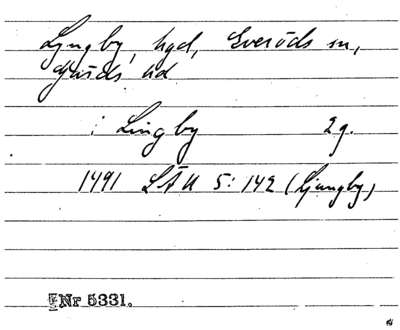 Ljungby, hgd, Everöds sn,
Gärds hd
: Lingby 2 g.
1491 LÄU 5:142 (Ljungby)
Nr 5331.